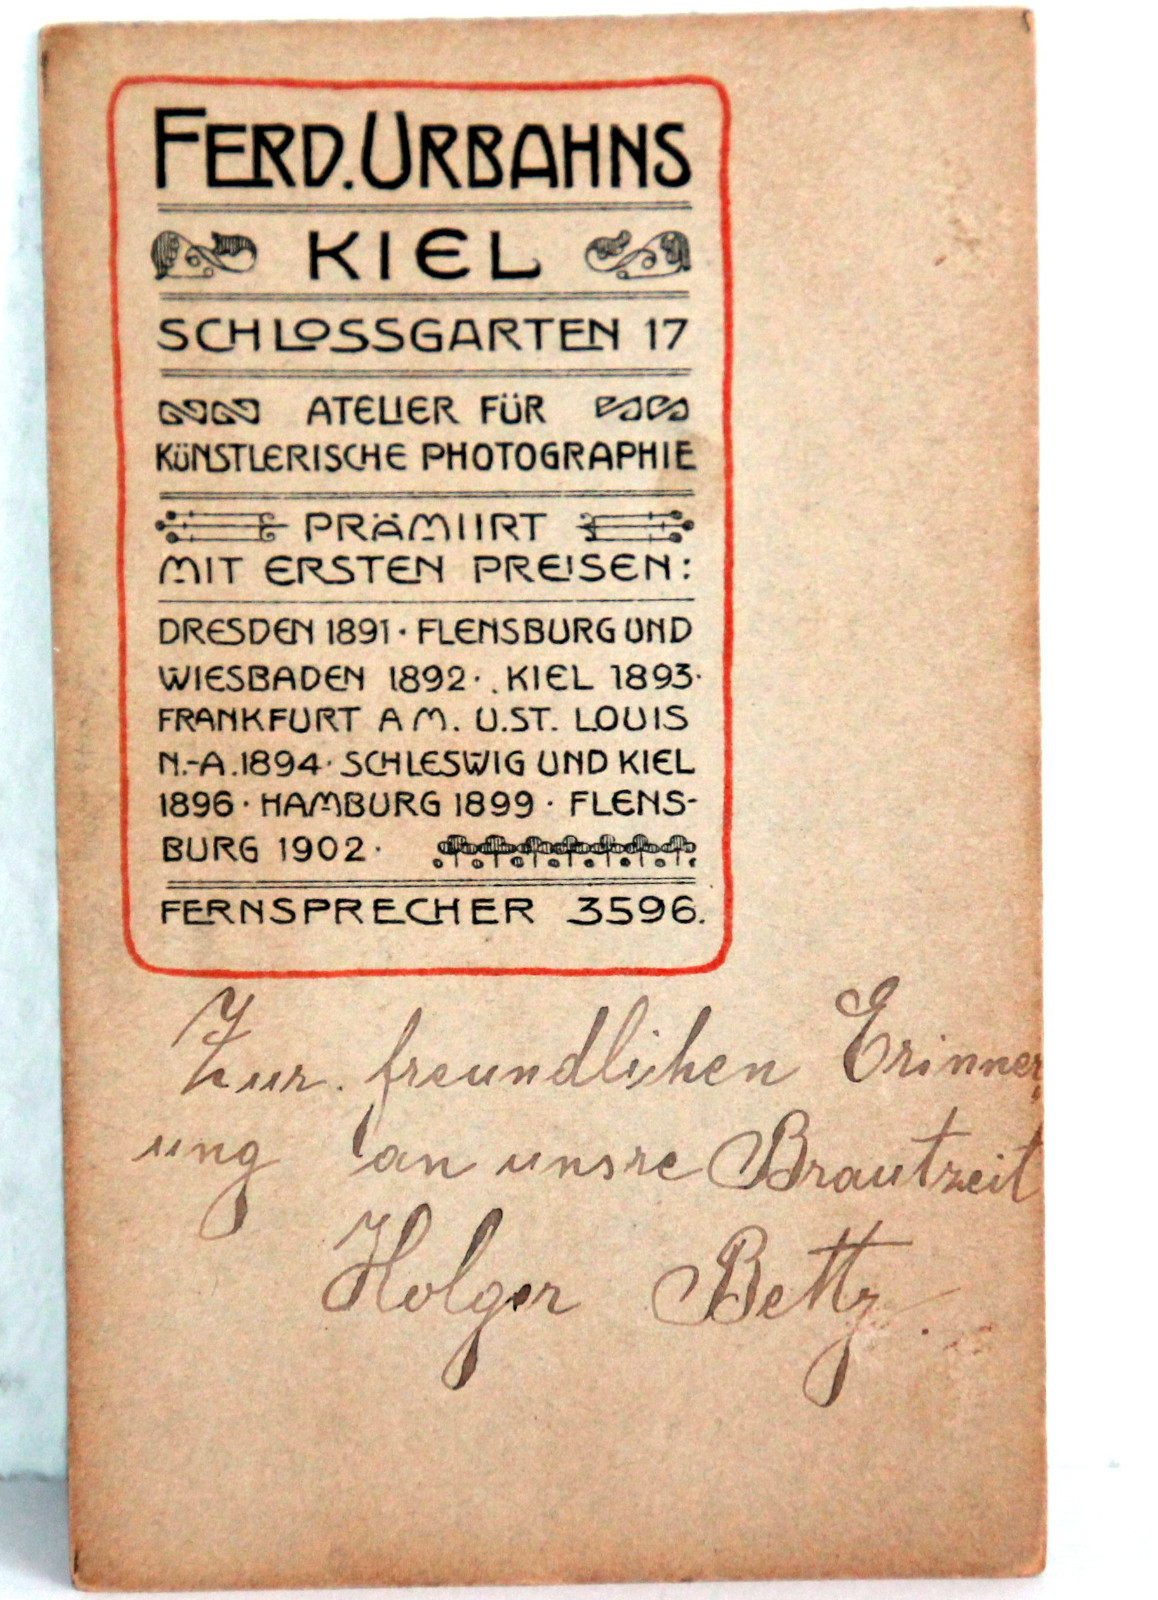 FERD. URBAHNS
KIEL
SCHLOSSGARTEN 17
ATELIER FÜR
KÜNSTLERISCHE PHOTOGRAPHIE
PRÄMIIRT
MIT ERSTEN PREISEN:
DRESDEN 1891 · FLENSBURG UND
WIESBADEN 1892 · KIEL 1893 ·
FRANKFURT A M. U. ST. LOUIS
N.-A. 1894 · SCHLESWIG UND KIEL
1896 · HAMBURG 1899 · FLENS-
BURG 1902 ·
FERNSPRECHER 3596.
Zur freundlichen Erinner
ung an unsre Brautzeit
Holger Bettz.